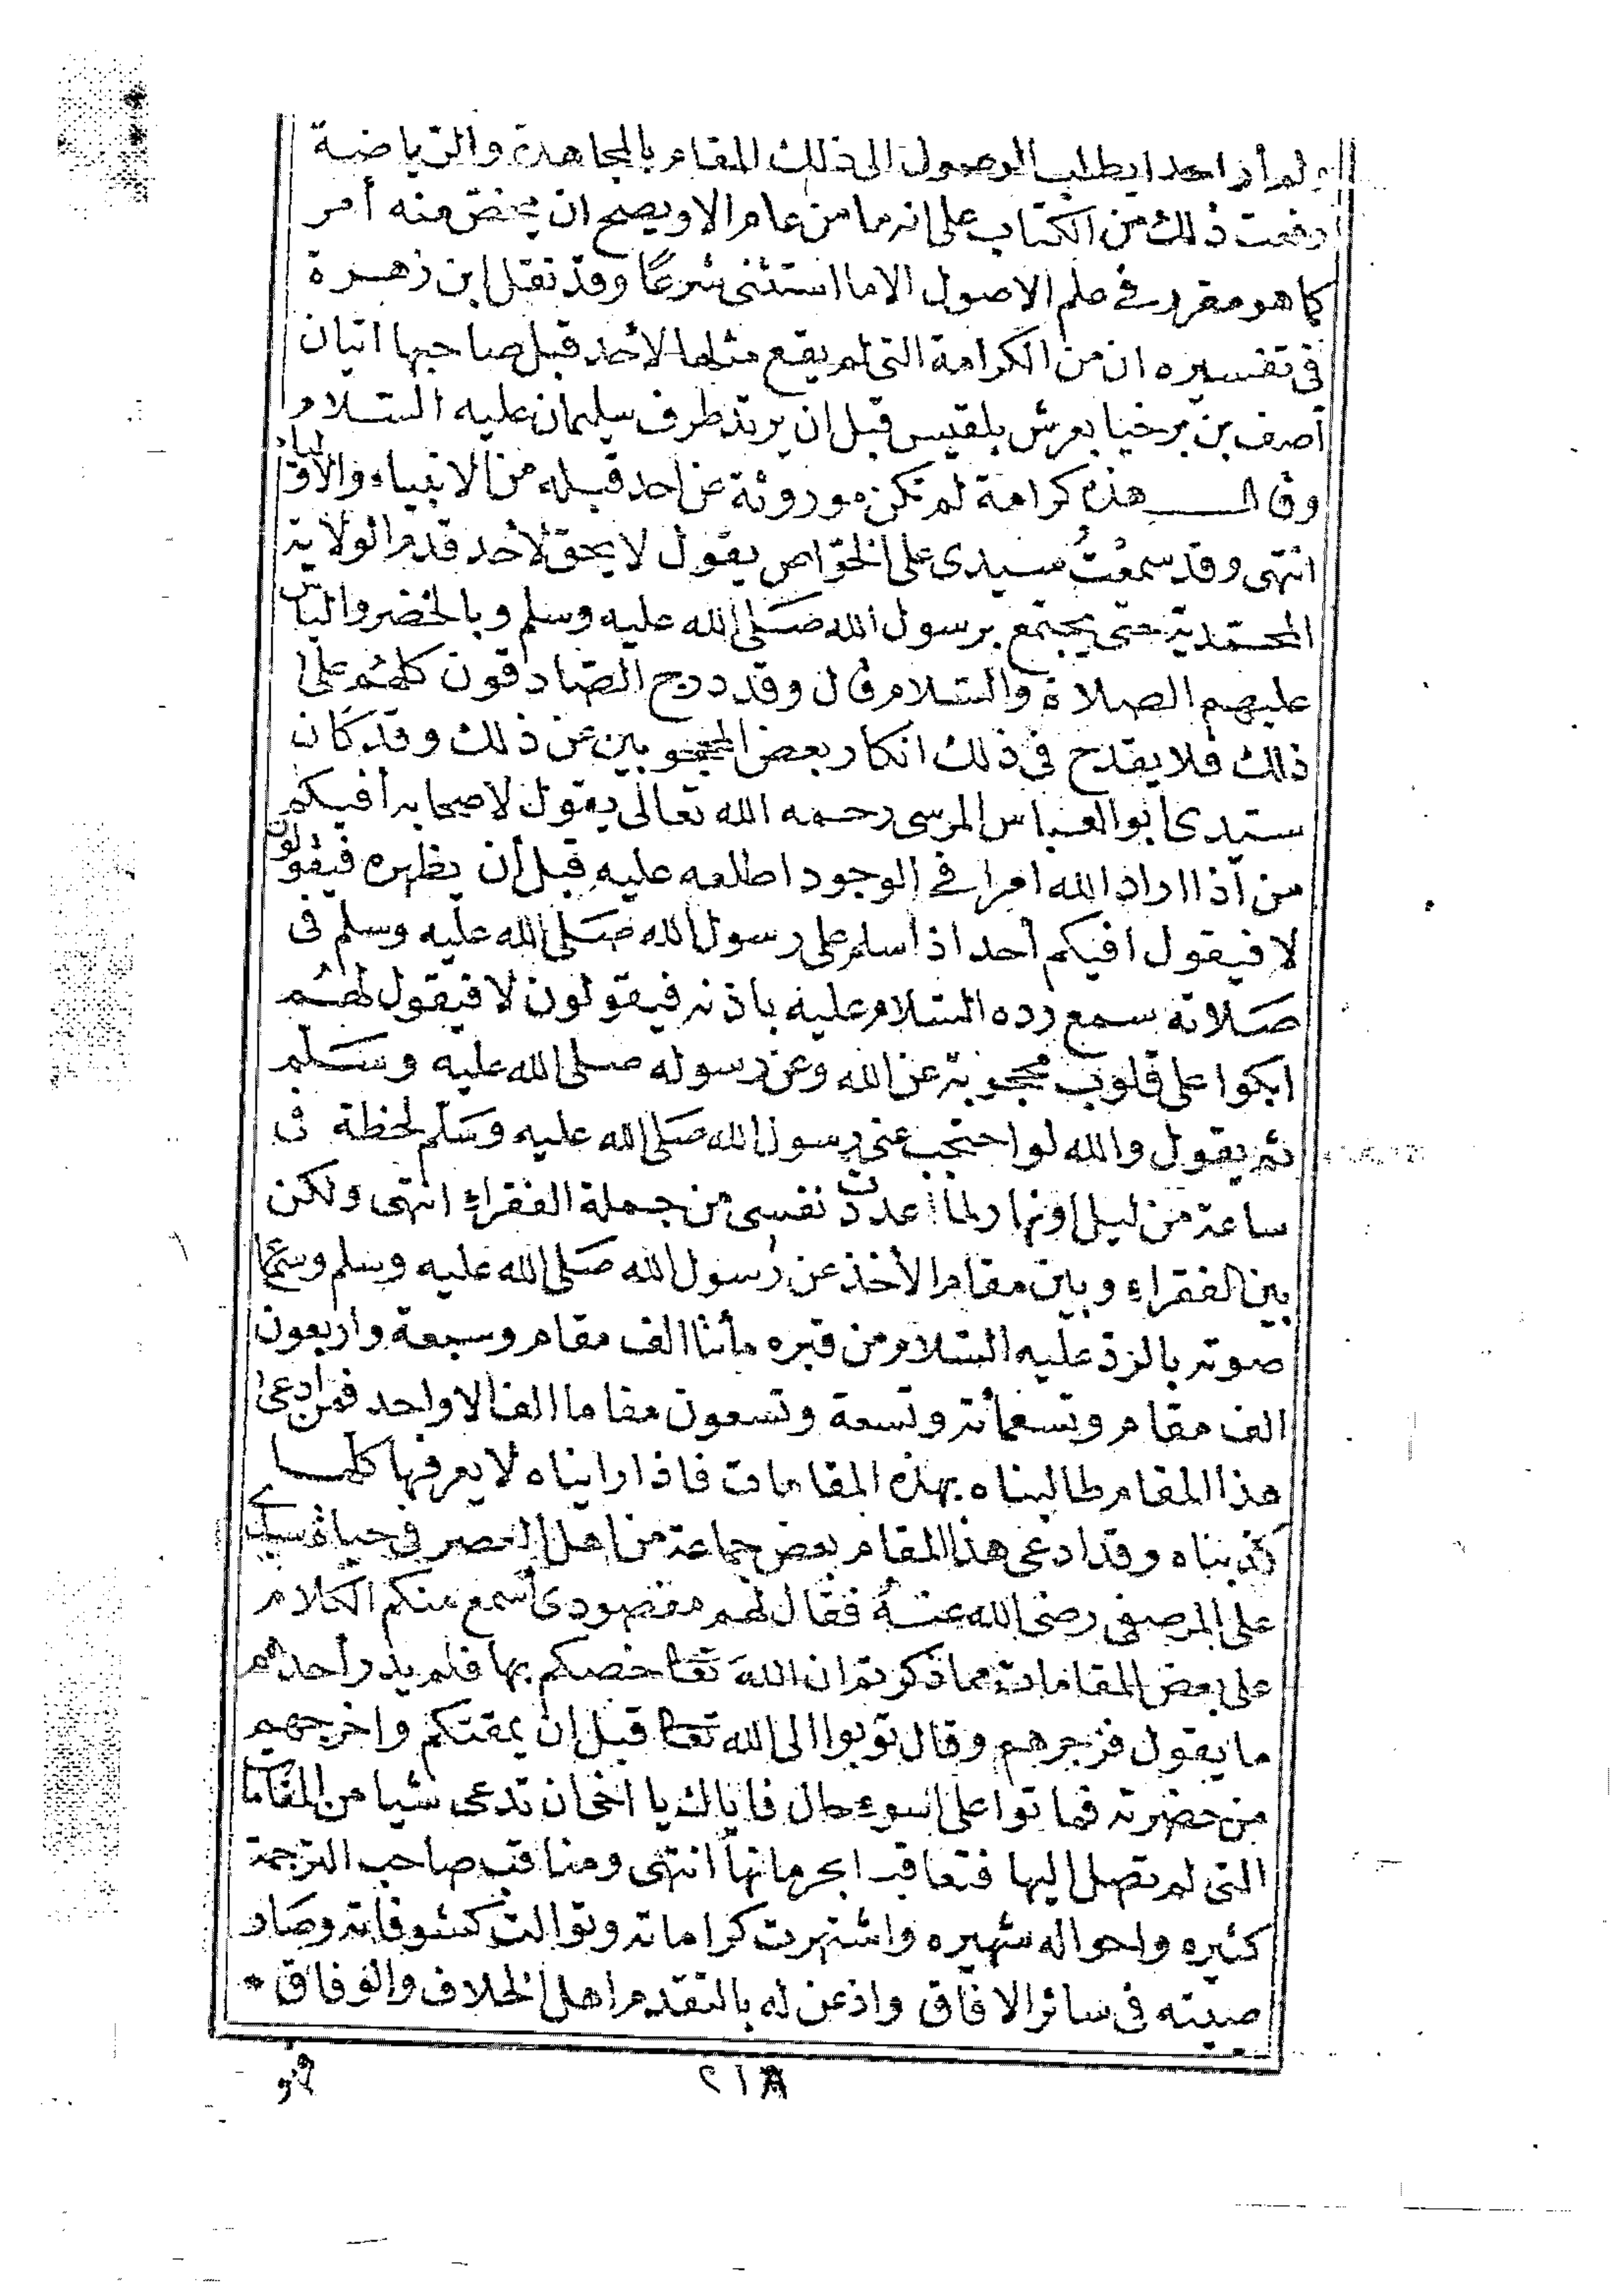 ولم أر احدا يطلب الوصول الى ذلك المقام بالمجاهدة والرياضة
رفعت ذلك من الكتاب على انه ما من عام الا ويصح ان يخص منه أمر
كما هو مقرر في علم الاصول الا ما استثنى شرعًا وقد نقل ابن زهرة
فى تفسيره ان من الكرامة التى لم يقع مثلها لأحد قبل صاحبها اتيان
آصف بن برخيا بعرش بلقيس قبل ان يرتد طرف سليمان عليه السلام
وقال هذه كرامة لم تكن موروثة عن احد قبله من الانبياء والأوليآء
انتهى وقد سمعْتُ سيدى على الخوّاص يقول لا يحق لأحد قدم الولاية
المحمدية حتى يجتمع برسول الله صَلى الله عليه وسلم وبالخضر والياس
عليهم الصلاة والسلام قال وقد درج الصّادقون كلهُم على
ذلك فلا يقدح فى ذلك انكار بعض المحجوبين عن ذلك وقد كَان
سيدى ابو العباس المرسى رحمه الله تعالى يقول لاصحابه أفيكم
من اذا اراد الله امرا في الوجود اطلعه عليه قبل أن يظهره فيقولون
لا فيقول افيكم أحد اذا سلم على رسول الله صَلى الله عليه وسلم فى
صَلاته سمع رده السّلام عليه باذنه فيقولون لا فيقول لهُم
ابكوا على قلوب محجوبة عن الله وعن رسوله صلى الله عليه وسَلم
ثم يقول والله لو احتجب عنى رسول الله صَلى الله عليه وسَلّم لحظة فى
ساعة من ليل او نهار لما اعددت نفسى من جملة الفقراء انتهى ولكن
بين الفقراء وبين مقام الأخذ عن رسول الله صَلى الله عليه وسلم وسمَاع
صوته بالرد عليه السّلام من قبره مأتا الف مقام وسبعة واربعون
الف مقام وتسعمائة وتسعة وتسعون مقاما الفا الا واحد فمن ادعى
هذا المقام طالبناه بهذه المقامات فاذا رايناه لا يعرفها كلها
كذبناه وقد ادعى هذا المقام بعض جماعة من اهل العصر فى حياة سيدي
على المرصفى رضى الله عنهُ فقال لهم مقصودى أسمع منكم الكلام
على بعض المقامات مما ذكرتم ان الله تعَا خصكم بها فلم يدر أحدهم
ما يقول فزجرهم وقال توبوا الى الله تعَا قبل ان يمقتكم واخرجهم
من حضرته فماتوا على اسوء حال فاياك يا اخى ان تدعى شيا من المقَامات
التى لم تصل اليها فتعاقب بحرمانها انتهى ومناقب صاحب الترجمة
كثيره واحواله شهيره واشتهرت كراماته وتوالت كشوفاته وصَار
صيته فى سائر الافاق واذعن له بالتقدم اهل الخلاف والوفاق *
٢١٨